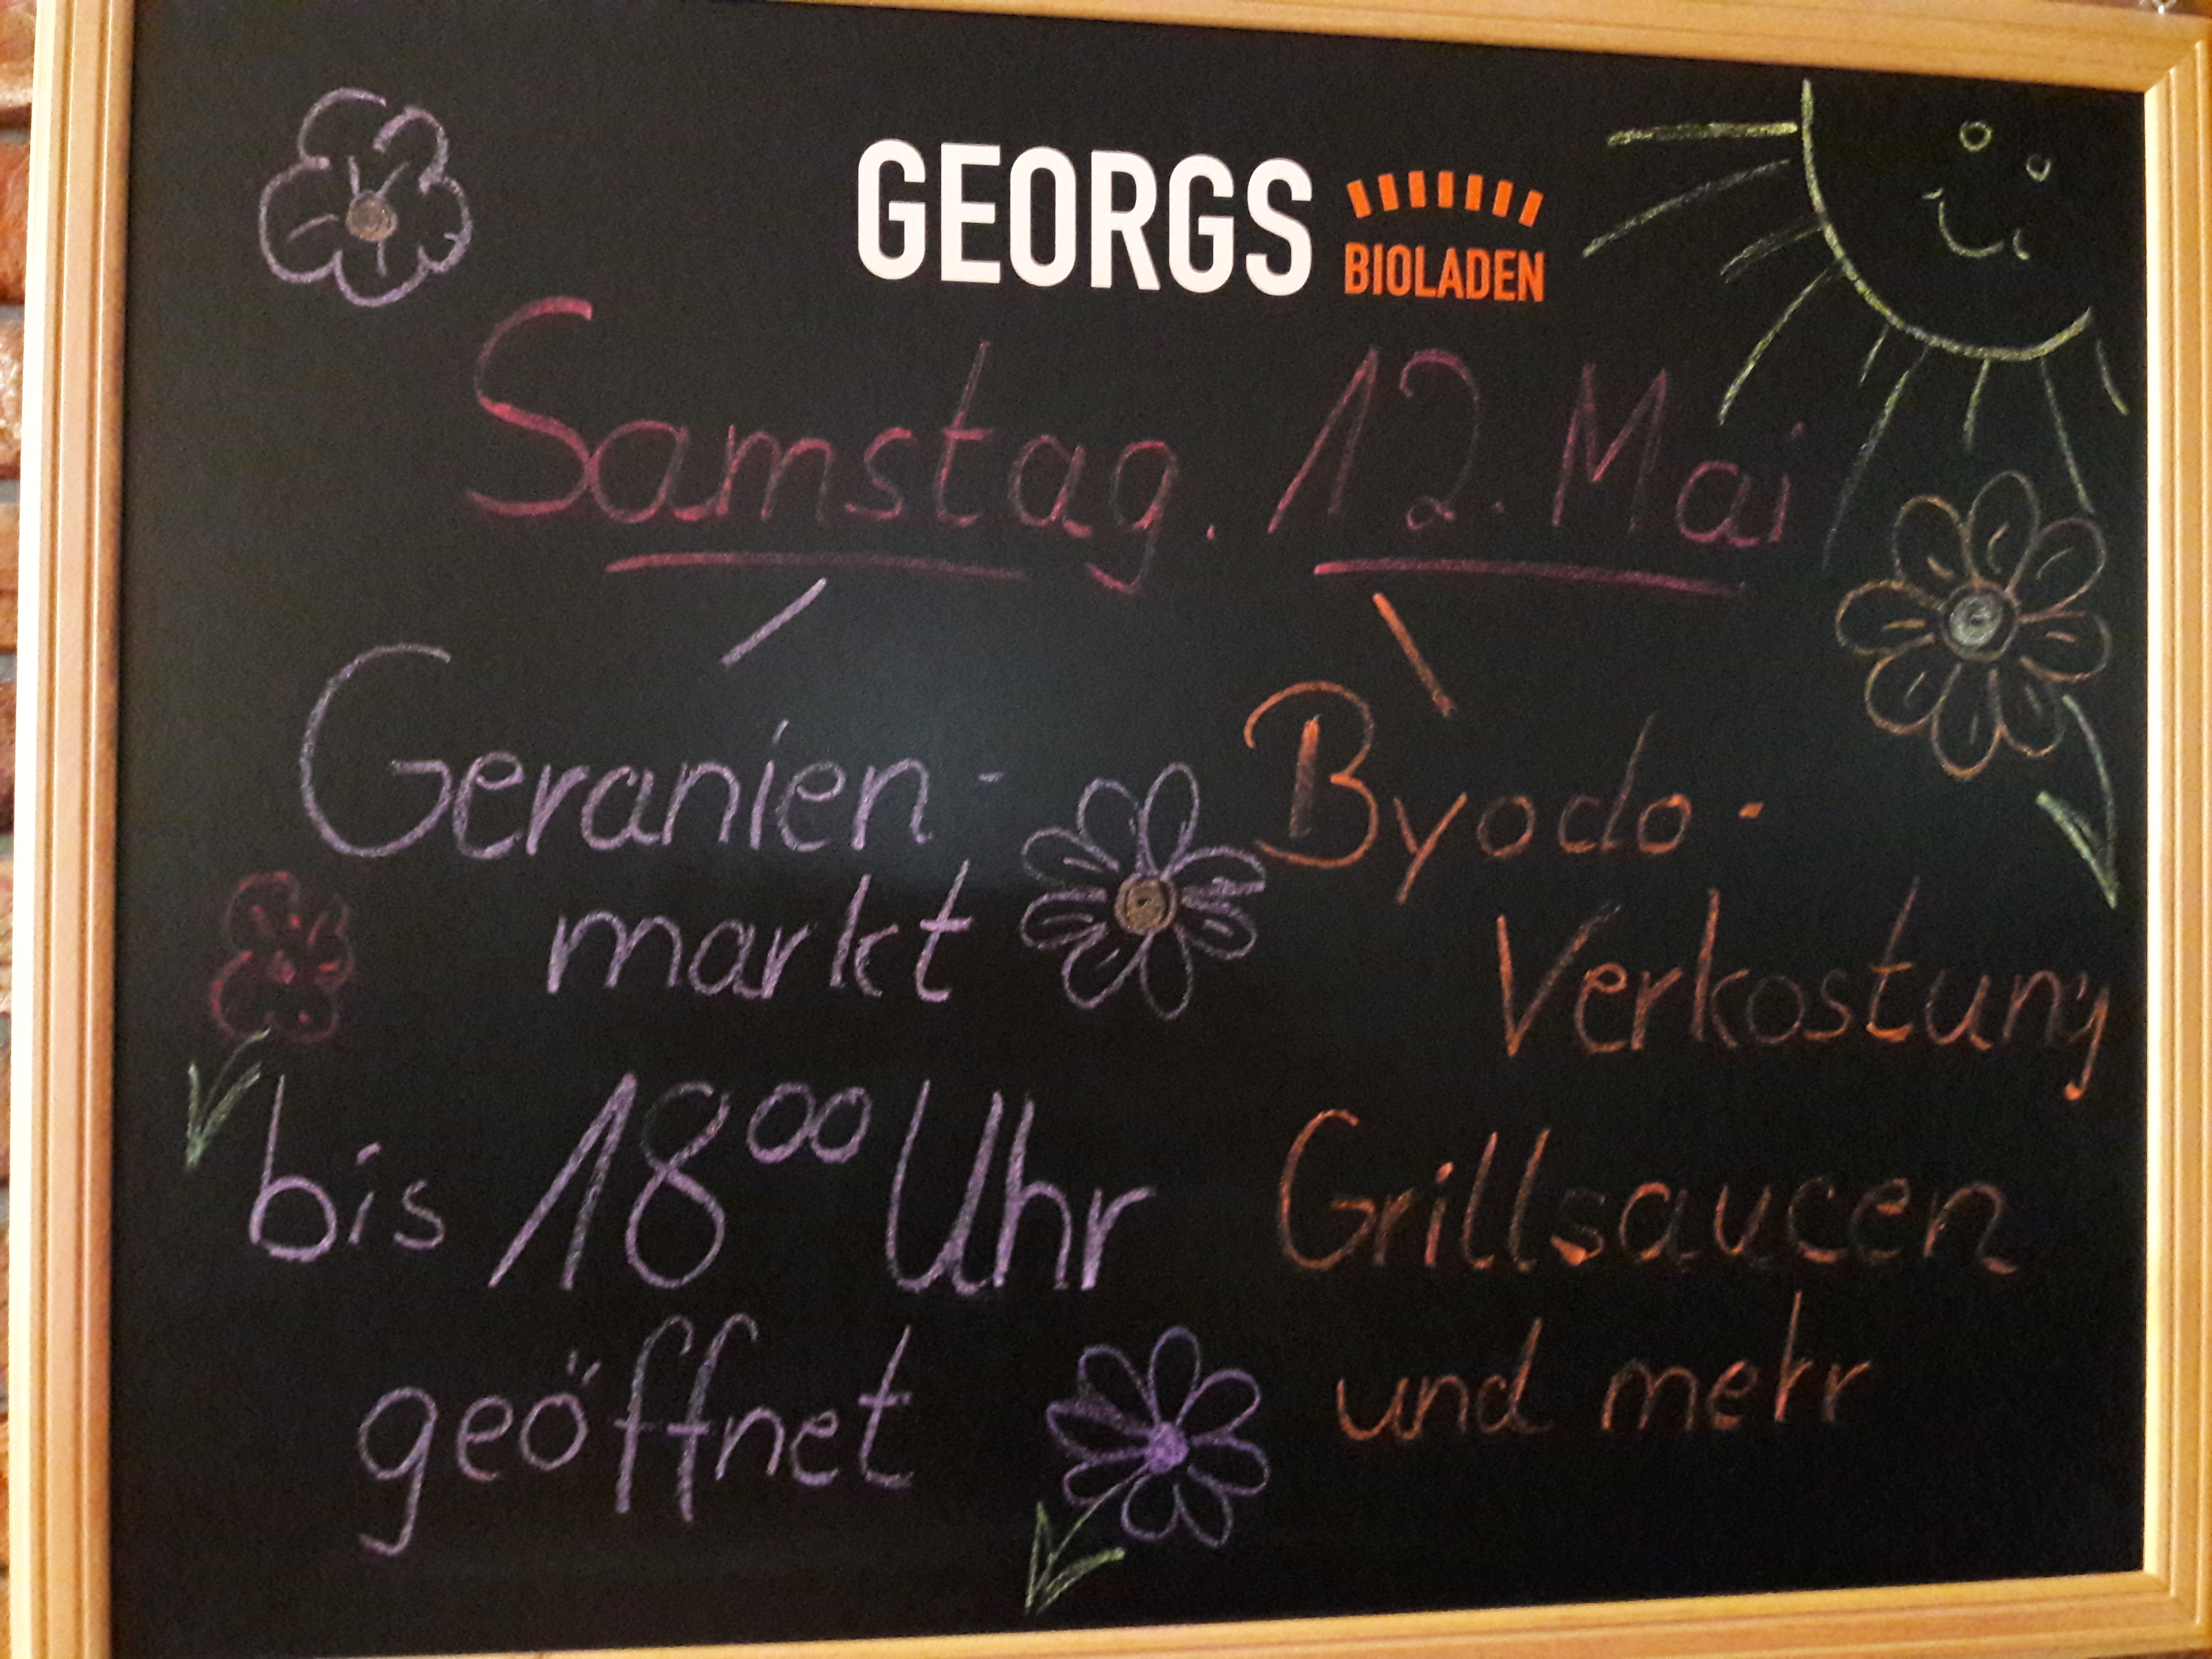 GEORGS BIOLADEN
Samstag. 12. Mai
Geranien-
markt
bis 18⁰⁰ Uhr
geöffnet
Byodo-
Verkostung
Grillsaucen
und mehr